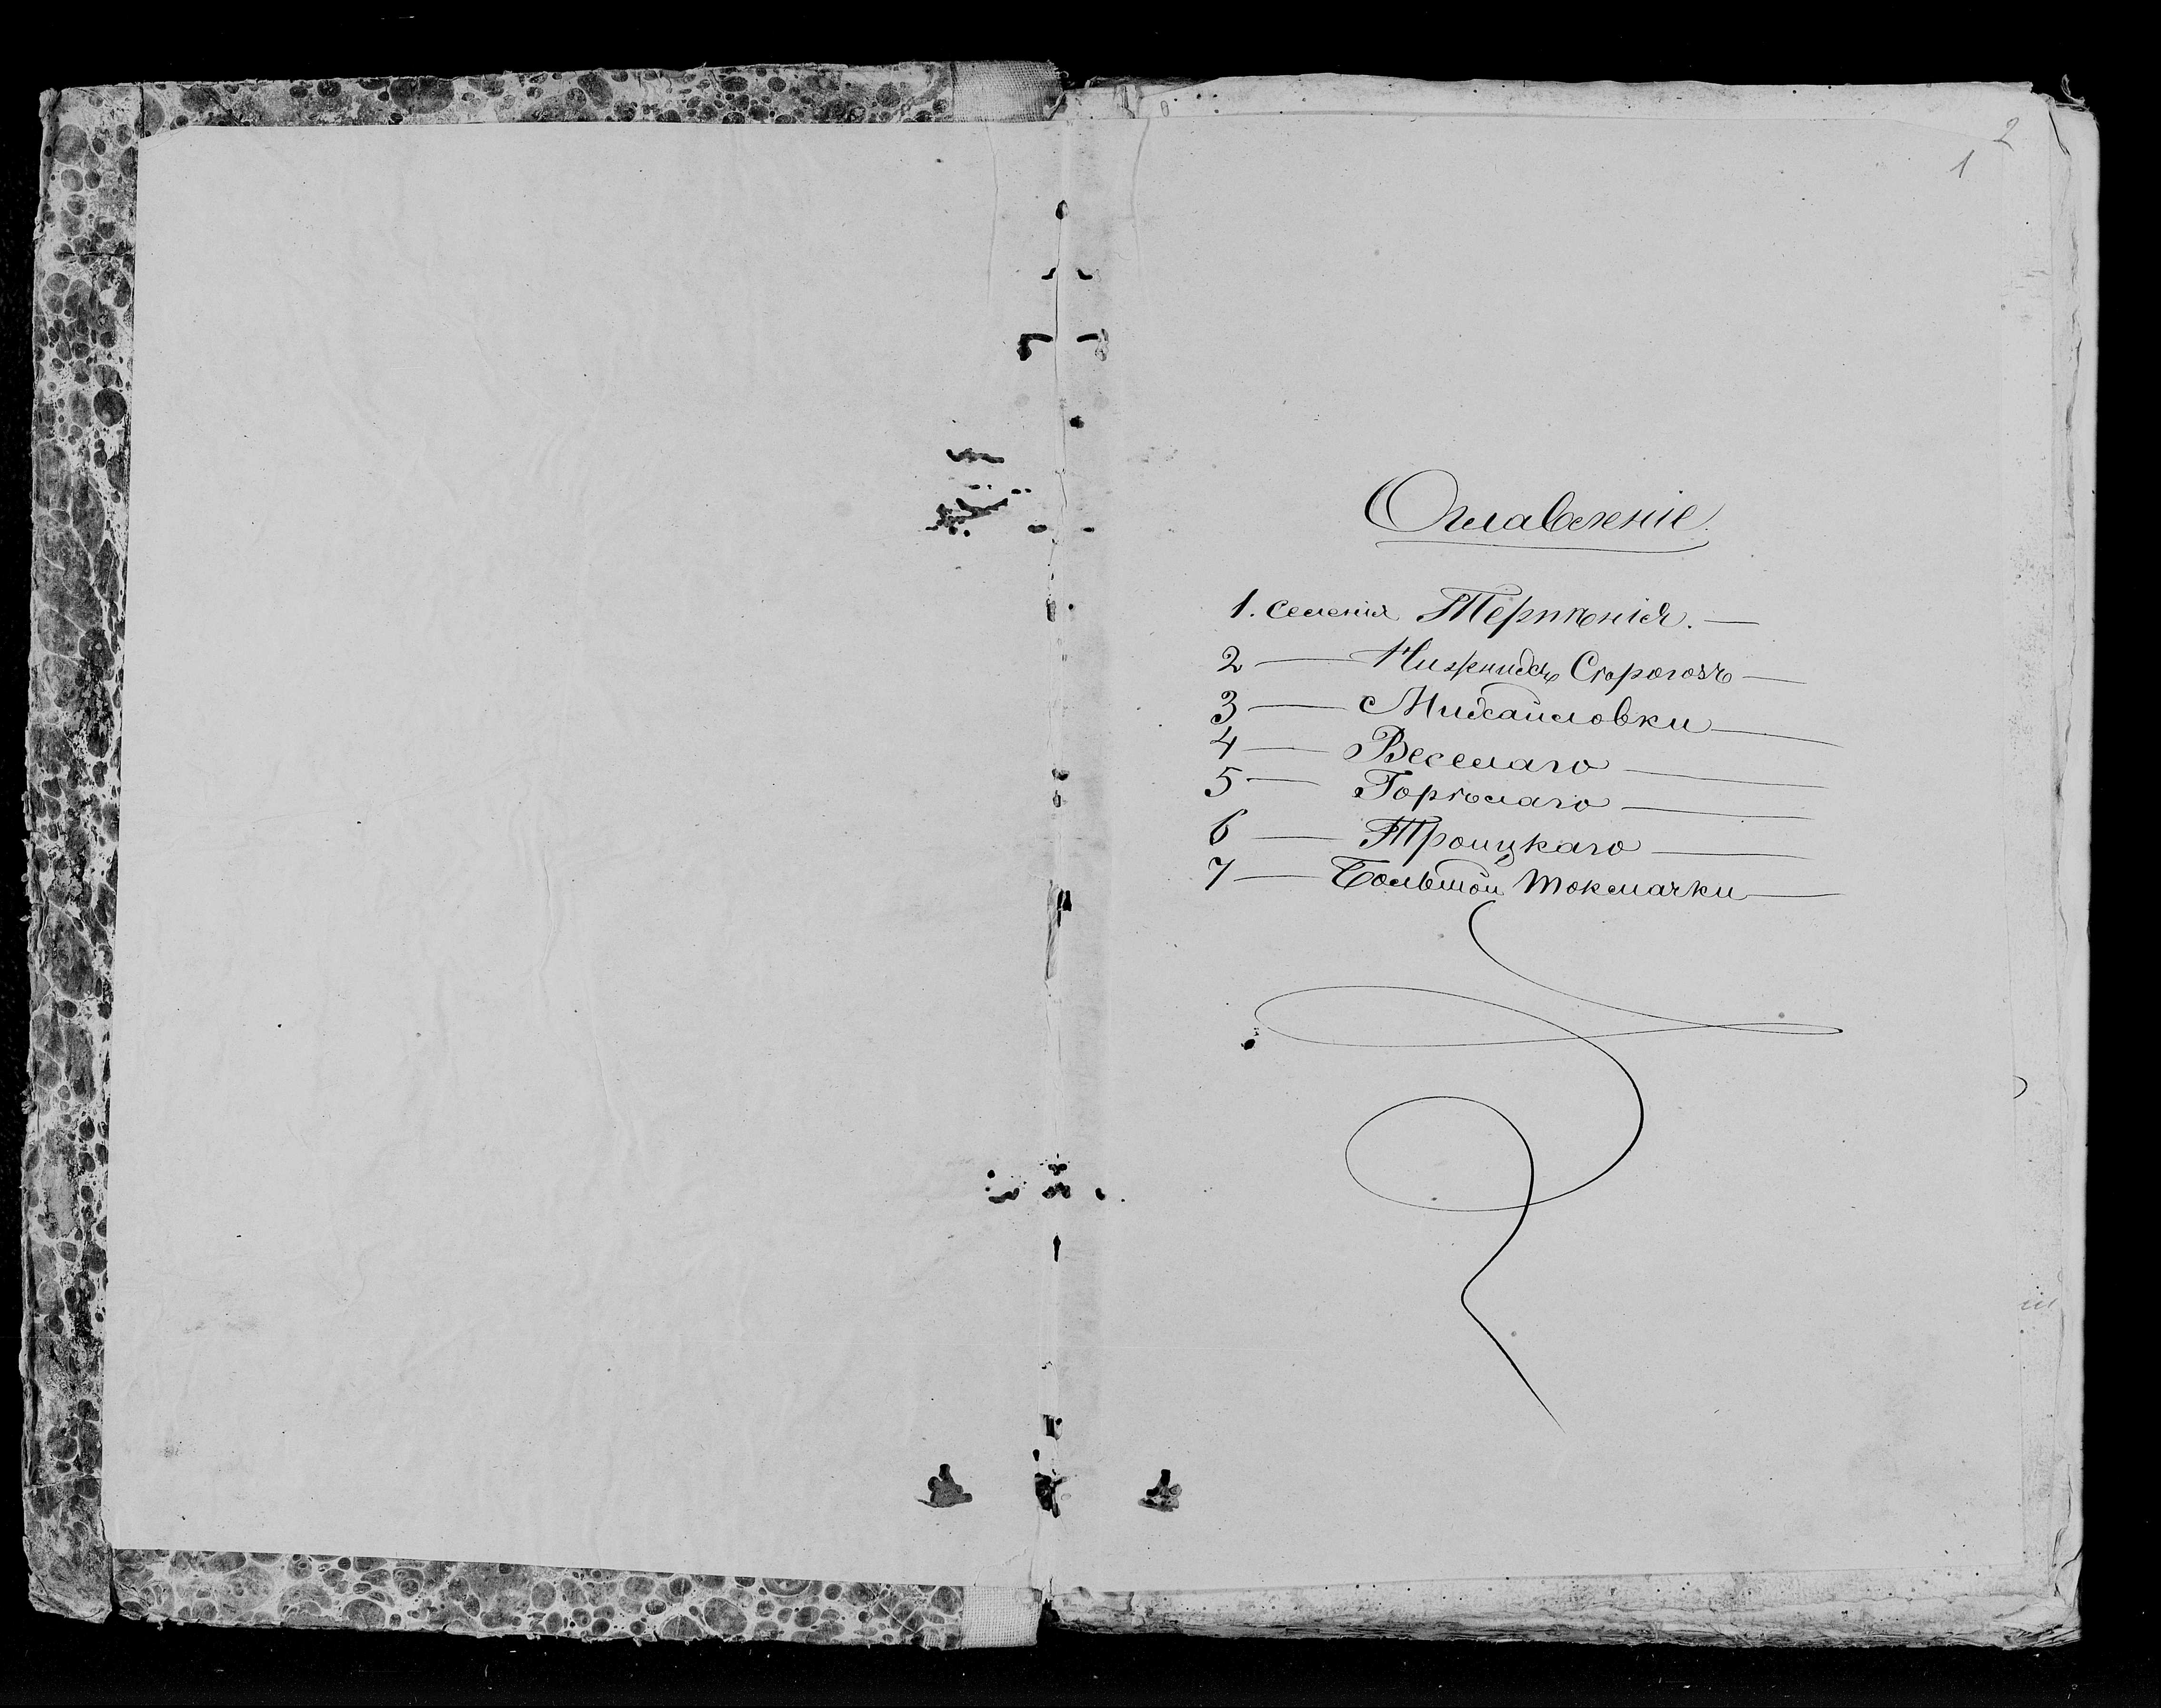 2
1
Оглавленіе.
1. селенія Терпѣнія. —
2 — Нижнихъ Сѣрогозъ —
3 — Михайловки —
4 — Веселаго —
5 — Горѣлаго —
6 — Троицкаго —
7 — Большой Токмачки —